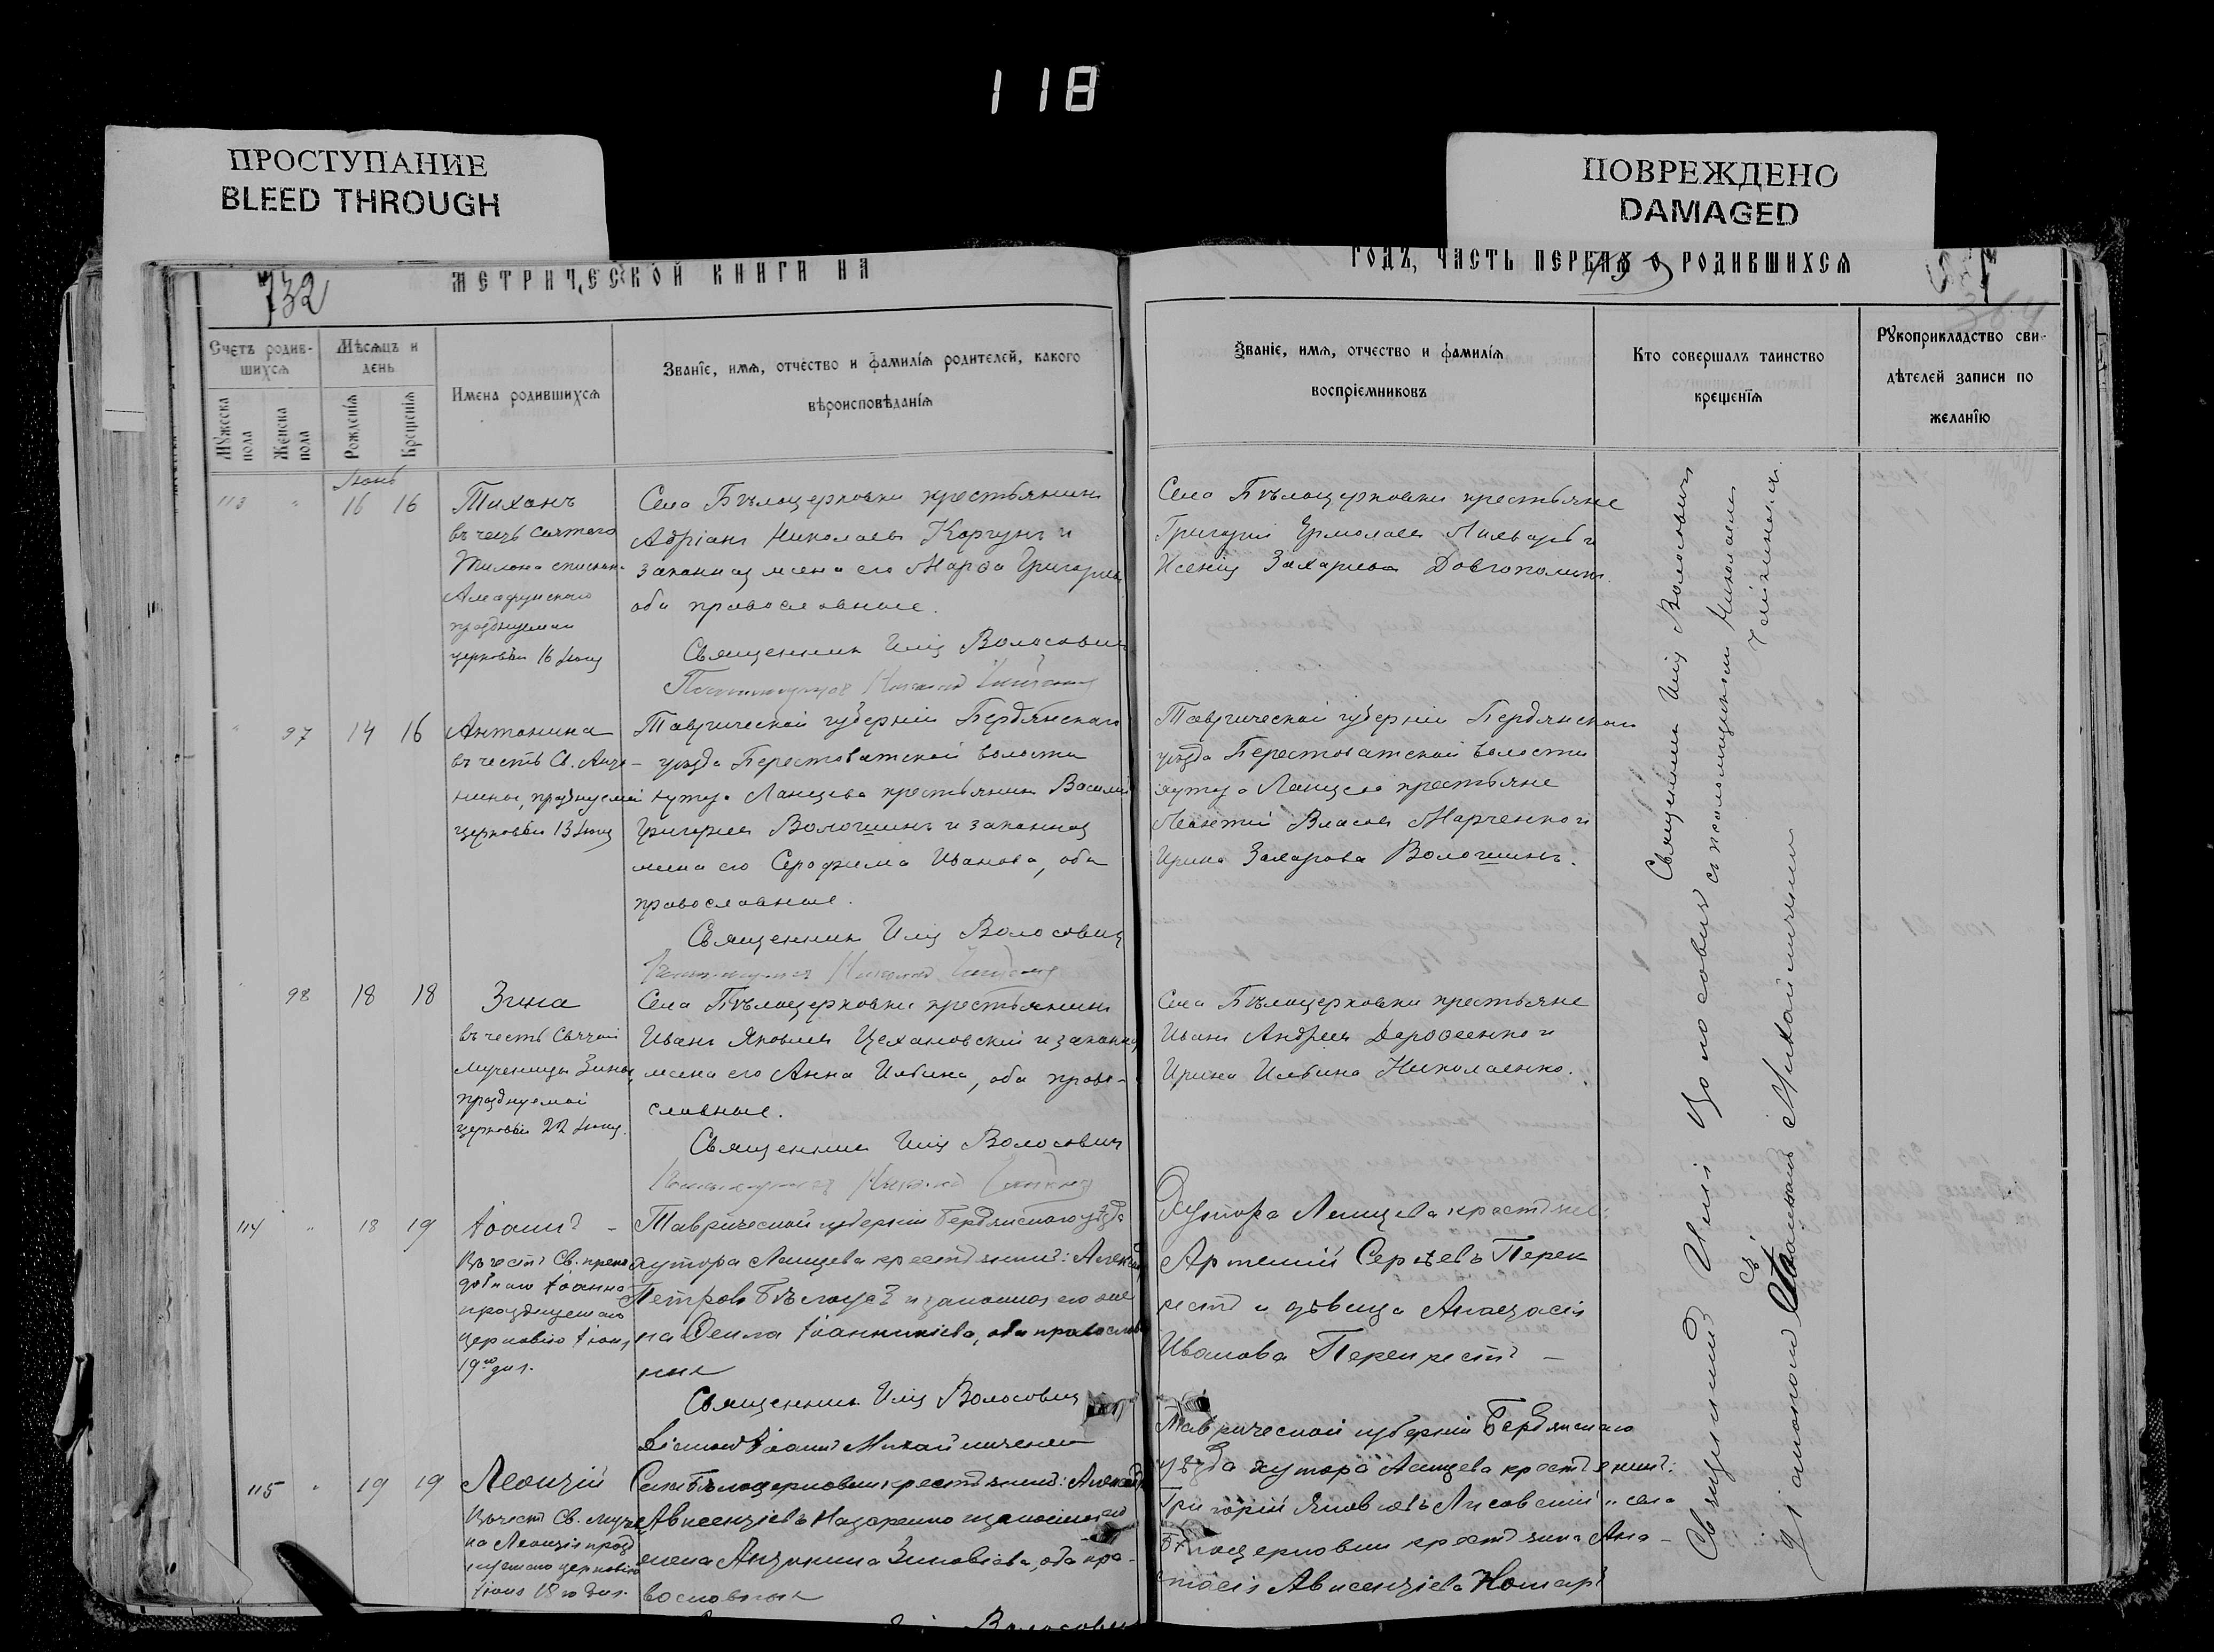 118
ПРОСТУПАНИЕ
BLEED THROUGH
ПОВРЕЖДЕНО
DAMAGED
732
МЕТРИЧЕСКОЙ КНИГИ НА
ГОДЪ, ЧАСТЬ ПЕРВАЯ О РОДИВШИХСЯ
Счетъ родив-
шихся
Мѣсяцъ и
день
Мужеска
пола
Женска
пола
Рожденія
Крещенія
Имена родившихся
Званіе, имя, отчество и фамилія родителей, какого
вѣроисповѣданія
Званіе, имя, отчество и фамилія
воспріемниковъ
Кто совершалъ таинство
крещенія
Рукоприкладство сви-
дѣтелей записи по
желанію
Іюнь
113 " 16 16
Тихонъ
въ честь Святого
Тихона
Амафунскаго
празднуемаго
церковью 16 Іюня
Села Бѣлоцерковки крестьянинъ
Адріанъ Николаевъ и
законная жена его Марѳа Григорьева
оба православные.
Священникъ Илія Волосовичъ
Села Бѣлоцерковки крестьяне
Григорій Ермолаевъ и
Ксенія Захарьева
" 97 14 16
Антонина
въ честь Св. Анто-
нины, празднуемой
церковью 13 Іюня
Таврической губерніи Бердянскаго
уѣзда Берестоватской волости
хутора Ланцева крестьянинъ Василій
Григорьевъ Волошинъ и законная
жена его Серафима Иванова, оба
православные.
Священникъ Илія Волосовичъ
Таврической губерніи Бердянскаго
уѣзда Берестоватской волости
хутора Ланцева крестьяне
Леонтій Власовъ Марченко и
Ирина Захарова Волошинъ.
" 98 18 18
Зина
въ честь Святой
Мученицы Зины,
празднуемой
церковью 22 Іюня.
Села Бѣлоцерковки крестьянинъ
Иванъ Яковлевъ Цехановскій и законная
жена его Анна Ильина, оба право-
славные.
Священникъ Илія Волосовичъ
Села Бѣлоцерковки крестьяне
Иванъ Андреевъ Дороѳеенко и
Ирина Ильина Николаенко.
114 " 18 19
Іоаннъ
Въ честь Св. препо
добнаго Іоанна
празднуемаго
церковію Іюня
19го дня.
Таврической губерніи Бердянскаго уѣзда
хутора Ланцева крестьянинъ: Алексѣй
Петровъ Бѣлоусъ и законная его же
на Ѳекла Іоанникіева, оба православ
ные
Священникъ Илія Волосовичъ
Діаконъ Іоаннъ Михайличенко
Хутора Ланцева крестьяне:
Артемій Сергѣевъ Перек
рестъ и дѣвица Анастасія
Иванова Перекрестъ
115 " 19 19
Леонтій
Въ честь Св. муче
на Леонтія празд
нуемаго церковію
Іюня 18го дня.
Села Бѣлоцерковки крестьянинъ:
Авксентіевъ Назаренко и законная его
жена Антонина Зиновіева, оба пра-
вославные
Таврической губерніи Бердянскаго
уѣзда хутора Ланцева крестьянинъ:
Григорій Яковлевъ Лисовскій и села
Бѣлоцерковки крестьянка Ана-
стасія Авксентіева
Священникъ Илія Волосовичъ
съ псаломщикомъ Николаемъ
Священникъ Илія Волосовичъ
съ
діакономъ Іоанномъ Михайличенкомъ